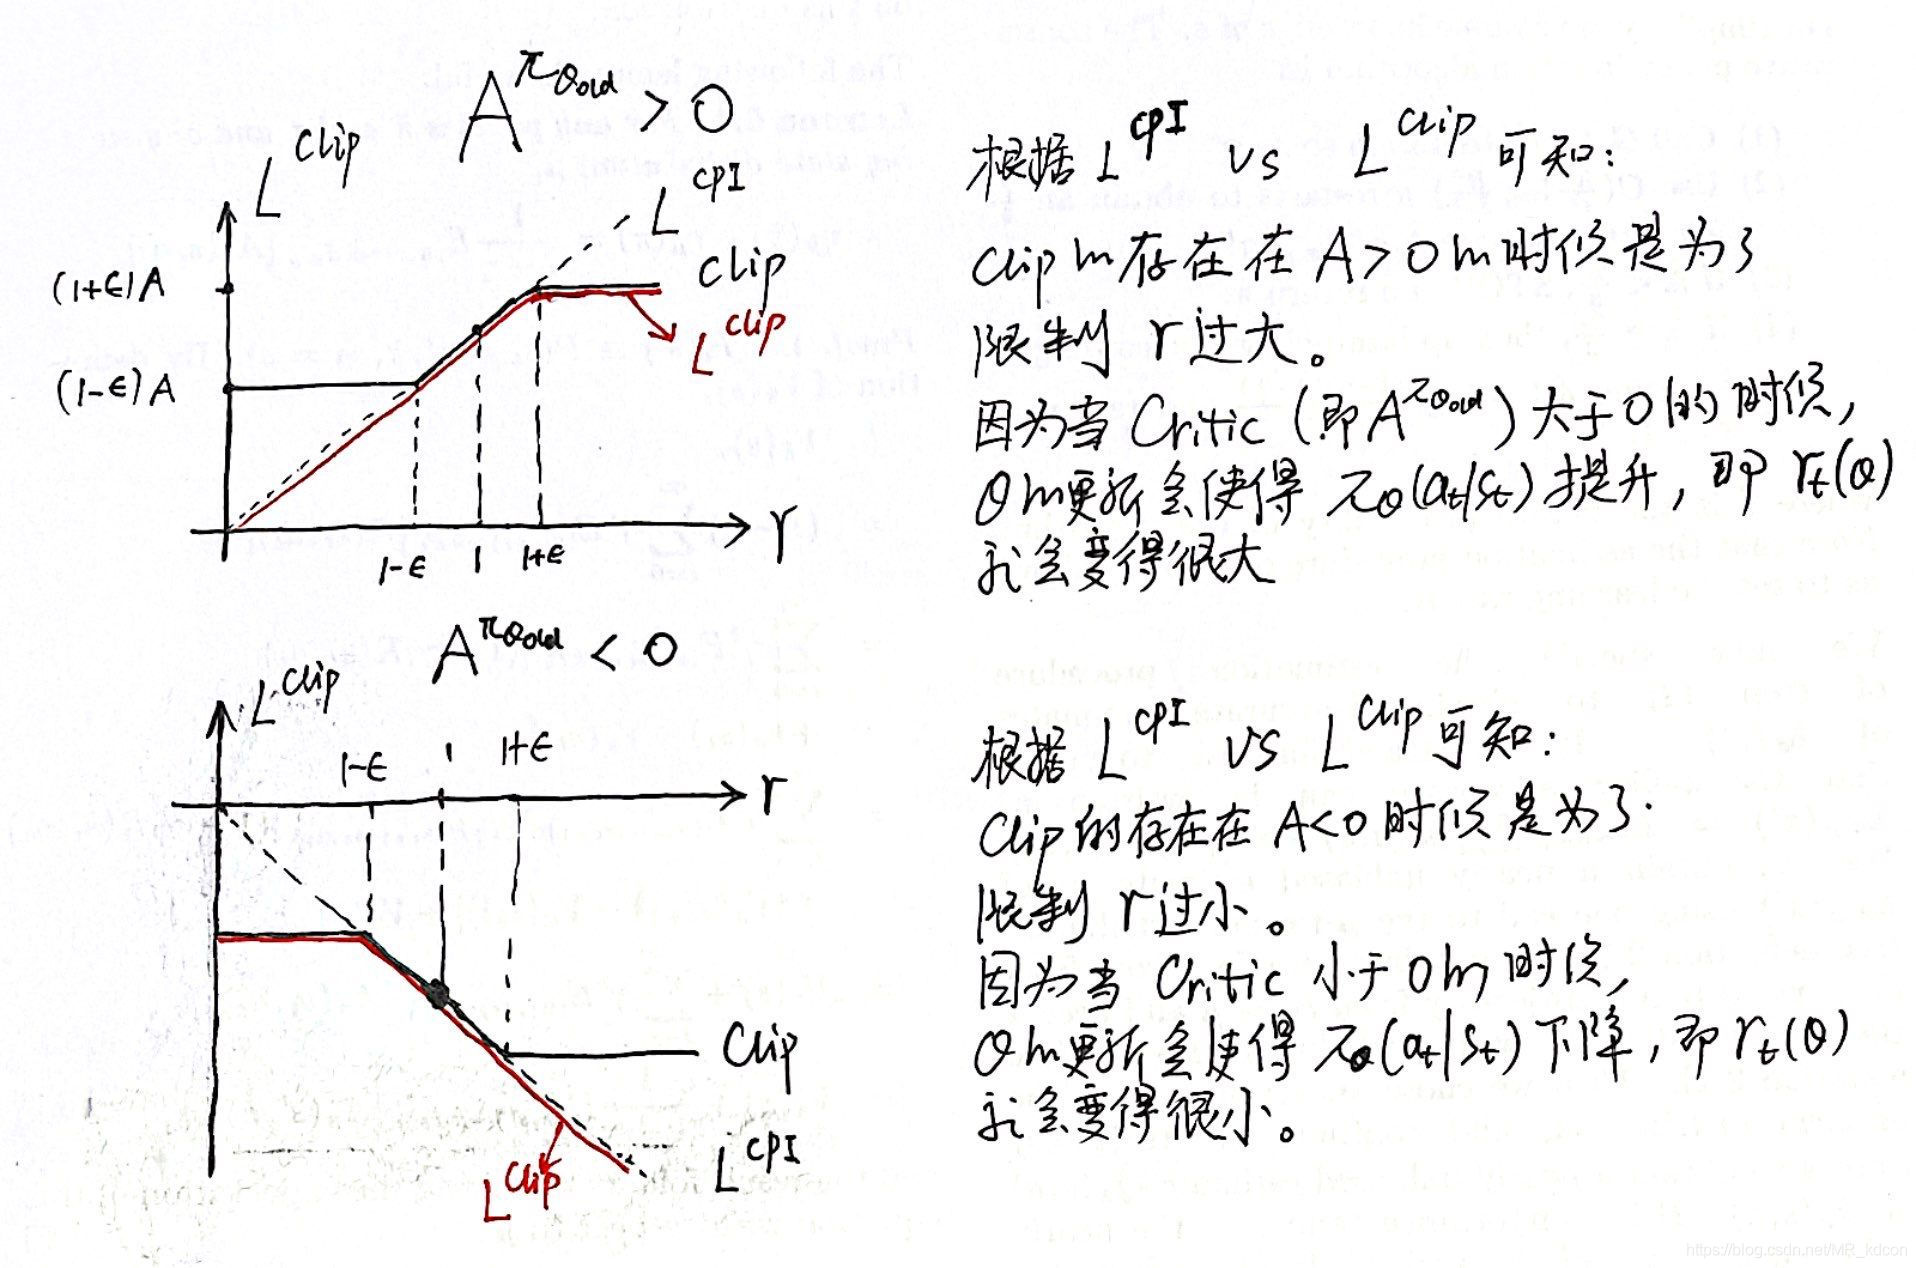 A^{π_{θold}} > 0
L^{Clip}
L^{CPI}
(1+ϵ)A
Clip
L^{Clip}
(1-ϵ)A
1-ϵ 1 1+ϵ
r
根据 L^{CPI} vs L^{Clip} 可知：
Clip的存在在 A>0的时候是为了
限制 r过大。
因为当 Critic (即A^{π_{θold}}) 大于0的时候,
θ的更新会使得 π_θ(a_t|s_t) 提升, 即 r_t(θ)
就会变得很大
A^{π_{θold}} < 0
L^{Clip}
1-ϵ 1 1+ϵ
r
Clip
L^{Clip}
L^{CPI}
根据 L^{CPI} vs L^{Clip} 可知：
Clip的存在在 A<0时候是为了
限制 r过小。
因为当 Critic 小于0的时候,
θ的更新会使得 π_θ(a_t|s_t) 下降, 即 r_t(θ)
就会变得很小。
https://blog.csdn.net/MR_kdcon